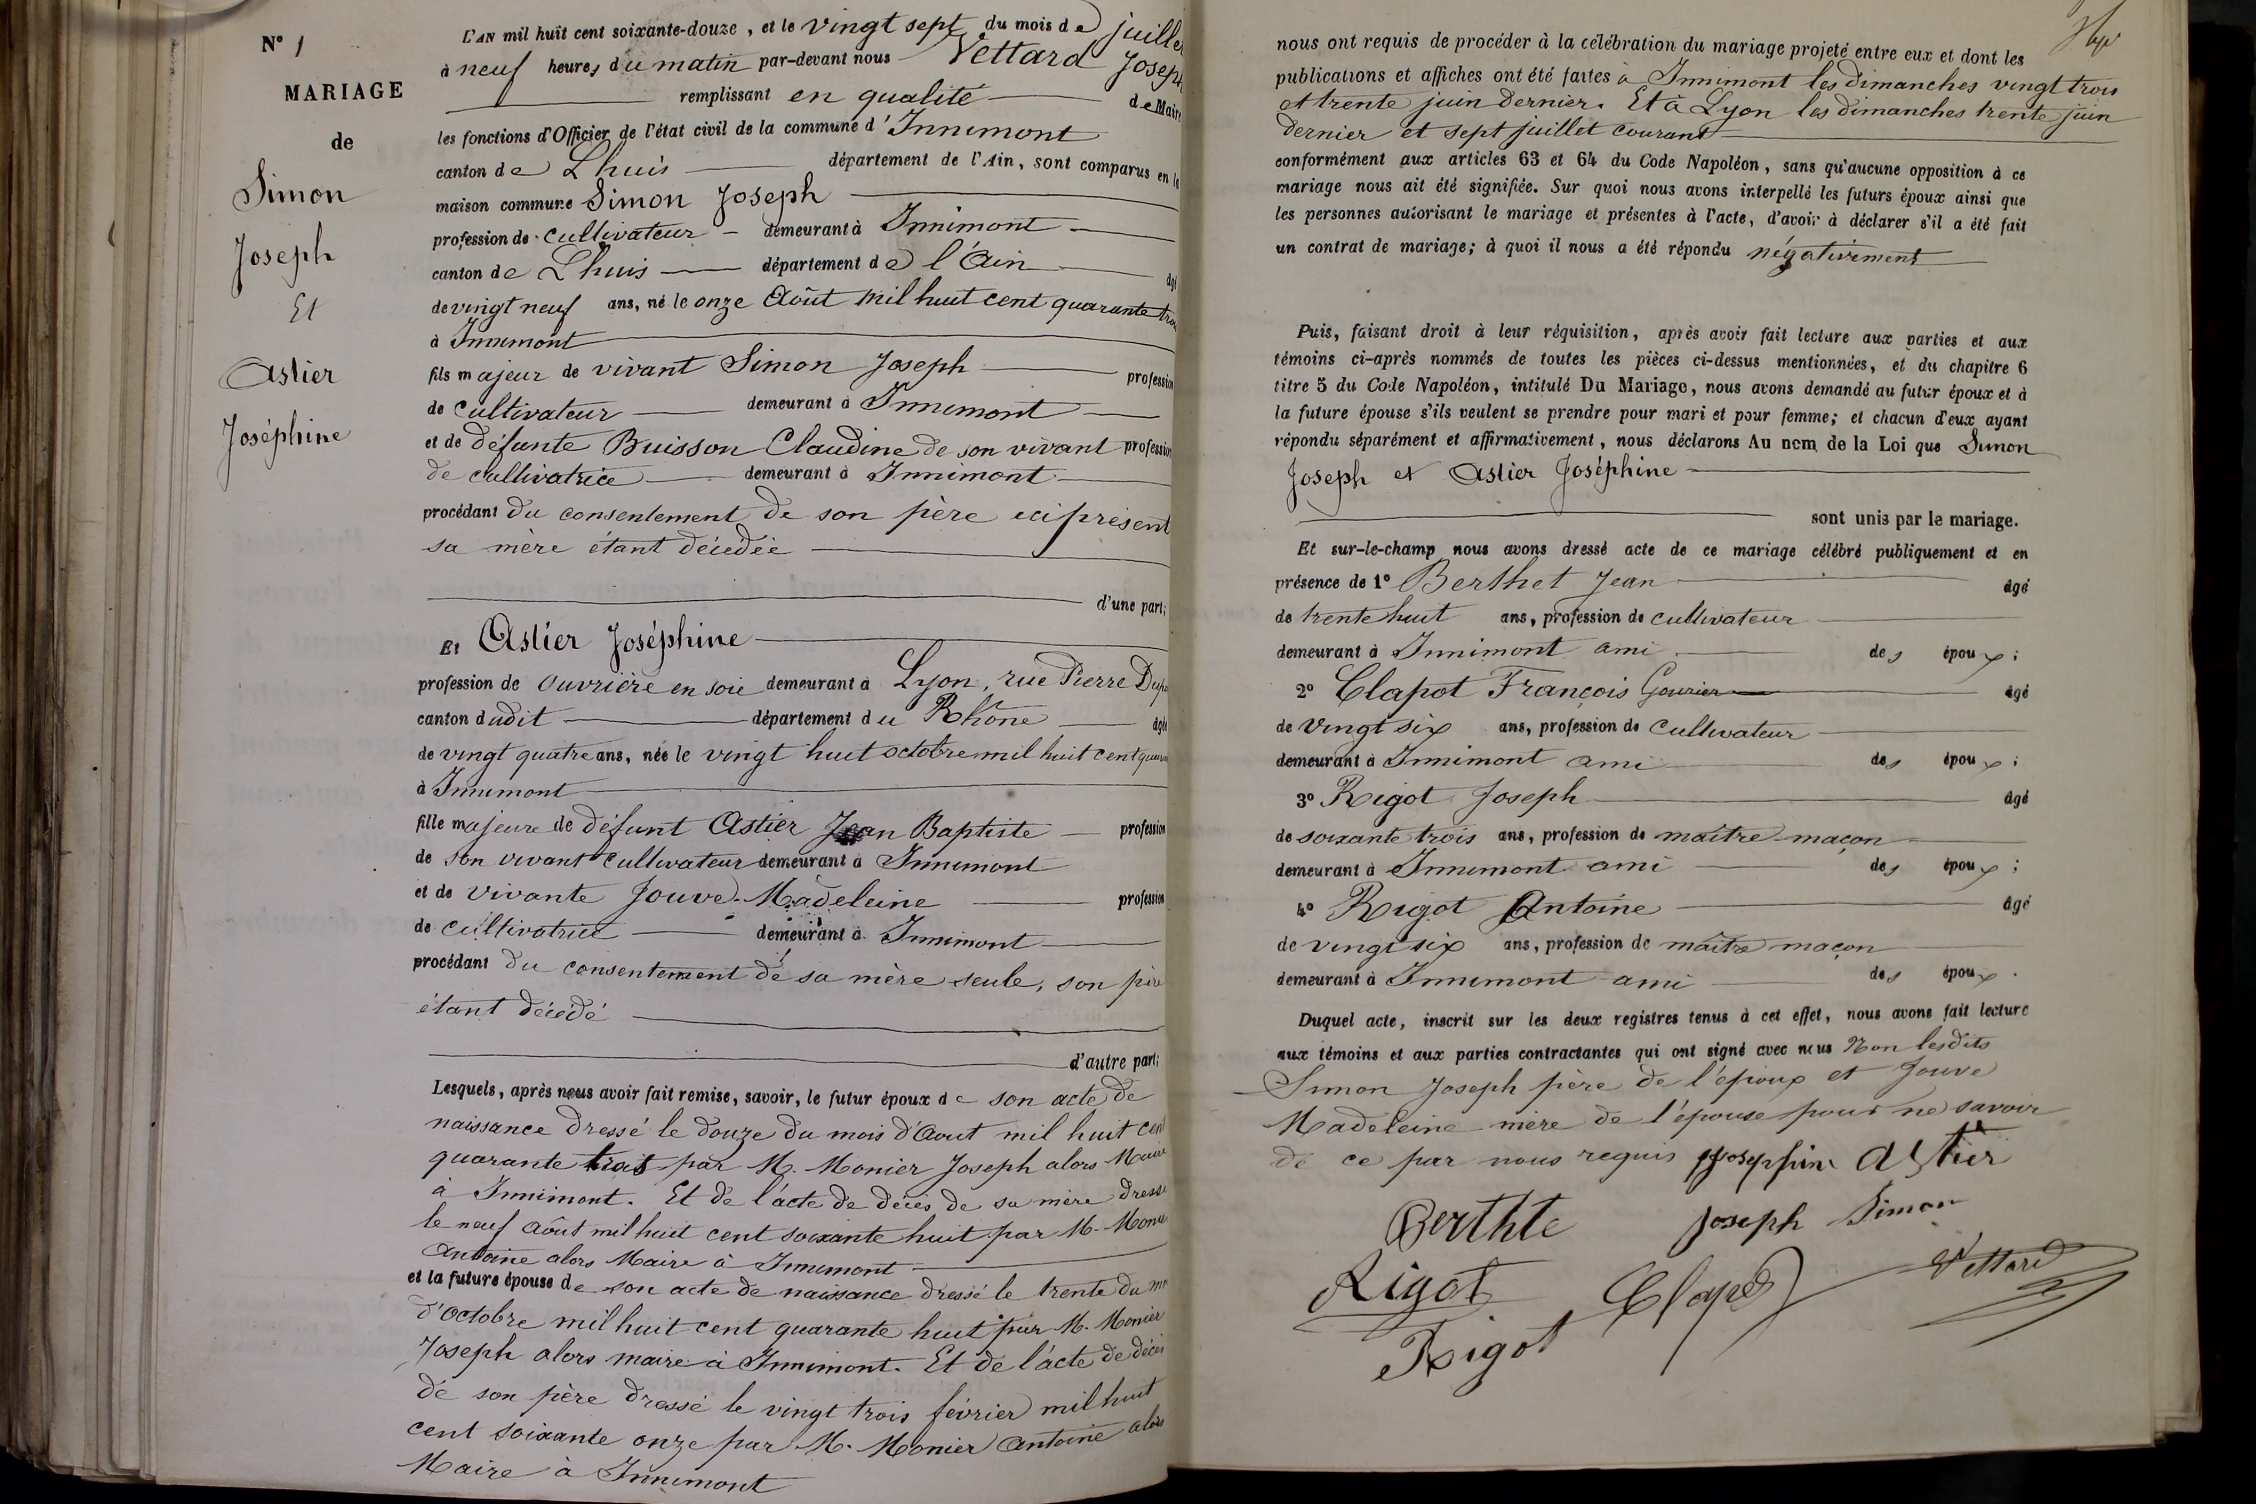 N° 1
MARIAGE
de
Simon
Joseph
Et
Astier
Joséphine
L'AN mil huit cent soixante-douze, et le vingt sept du mois de juillet
à neuf heures du matin par-devant nous Vettard Joseph
remplissant en qualité de Maire
les fonctions d'Officier de l'état civil de la commune d'Innimont
canton de Lhuis département de l'Ain, sont comparus en la
maison commune Simon Joseph
profession de cultivateur demeurant à Innimont
canton de Lhuis département de l'Ain âgé
de vingt neuf ans, né le onze Août mil huit cent quarante trois
à Innimont
fils majeur de vivant Simon Joseph profession
de cultivateur demeurant à Innimont
et de défunte Buisson Claudine de son vivant profession
de cultivatrice demeurant à Innimont
procédant du consentement de son père ici présent
sa mère étant décédée
d'une part;
Et Astier Joséphine
profession de ouvrière en soie demeurant à Lyon, rue Pierre Dup
canton dudit département du Rhône âgée
de vingt quatre ans, née le vingt huit octobre mil huit cent quaran
à Innimont
fille majeure de défunt Astier Jean Baptiste profession
de son vivant cultivateur demeurant à Innimont
et de vivante Jouve Madeleine profession
de cultivatrice demeurant à Innimont
procédant du consentement de sa mère seule, son père
étant décédé
d'autre part;
Lesquels, après nous avoir fait remise, savoir, le futur époux de son acte de
naissance dressé le douze du mois d'Aout mil huit cent
quarante trois par M. Monier Joseph alors Maire
à Innimont. Et de l'acte de décès de sa mère dressé
le neuf Août mil huit cent soixante huit par M. Monier
Antoine alors Maire à Innimont
et la future épouse de son acte de naissance dressé le trente du mo
d'octobre mil huit cent quarante huit par M. Monier
Joseph alors maire à Innimont. Et de l'acte de décès
de son père dressé le vingt trois février mil huit
cent soixante onze par M. Monier Antoine alors
Maire à Innimont
nous ont requis de procéder à la célébration du mariage projeté entre eux et dont les
publications et affiches ont été faites à Innimont les dimanches vingt trois
et trente juin dernier. Et à Lyon les dimanches trente juin
dernier et sept juillet courant
conformément aux articles 63 et 64 du Code Napoléon, sans qu'aucune opposition à ce
mariage nous ait été signifiée. Sur quoi nous avons interpellé les futurs époux ainsi que
les personnes autorisant le mariage et présentes à l'acte, d'avoir à déclarer s'il a été fait
un contrat de mariage; à quoi il nous a été répondu négativement
Puis, faisant droit à leur réquisition, après avoir fait lecture aux parties et aux
témoins ci-après nommés de toutes les pièces ci-dessus mentionnées, et du chapitre 6
titre 5 du Code Napoléon, intitulé Du Mariage, nous avons demandé au futur époux et à
la future épouse s'ils veulent se prendre pour mari et pour femme; et chacun d'eux ayant
répondu séparément et affirmativement, nous déclarons Au nom de la Loi que Simon
Joseph et Astier Joséphine
sont unis par le mariage.
Et sur-le-champ nous avons dressé acte de ce mariage célébré publiquement et en
présence de 1° Berthet Jean âgé
de trente huit ans, profession de cultivateur
demeurant à Innimont ami des époux;
2° Clapot François Gourier âgé
de vingt six ans, profession de cultivateur
demeurant à Innimont ami des époux;
3° Rigot Joseph âgé
de soixante trois ans, profession de maître maçon
demeurant à Innimont ami des époux;
4° Rigot Antoine âgé
de vingt six ans, profession de maître maçon
demeurant à Innimont ami des époux.
Duquel acte, inscrit sur les deux registres tenus à cet effet, nous avons fait lecture
aux témoins et aux parties contractantes qui ont signé avec nous Non lesdits
Simon Joseph père de l'époux et Jouve
Madeleine mère de l'épouse pour ne savoir
de ce par nous requis Josephine Astier
Berthte Joseph Simon
Rigot Clapot Vettard
Rigot